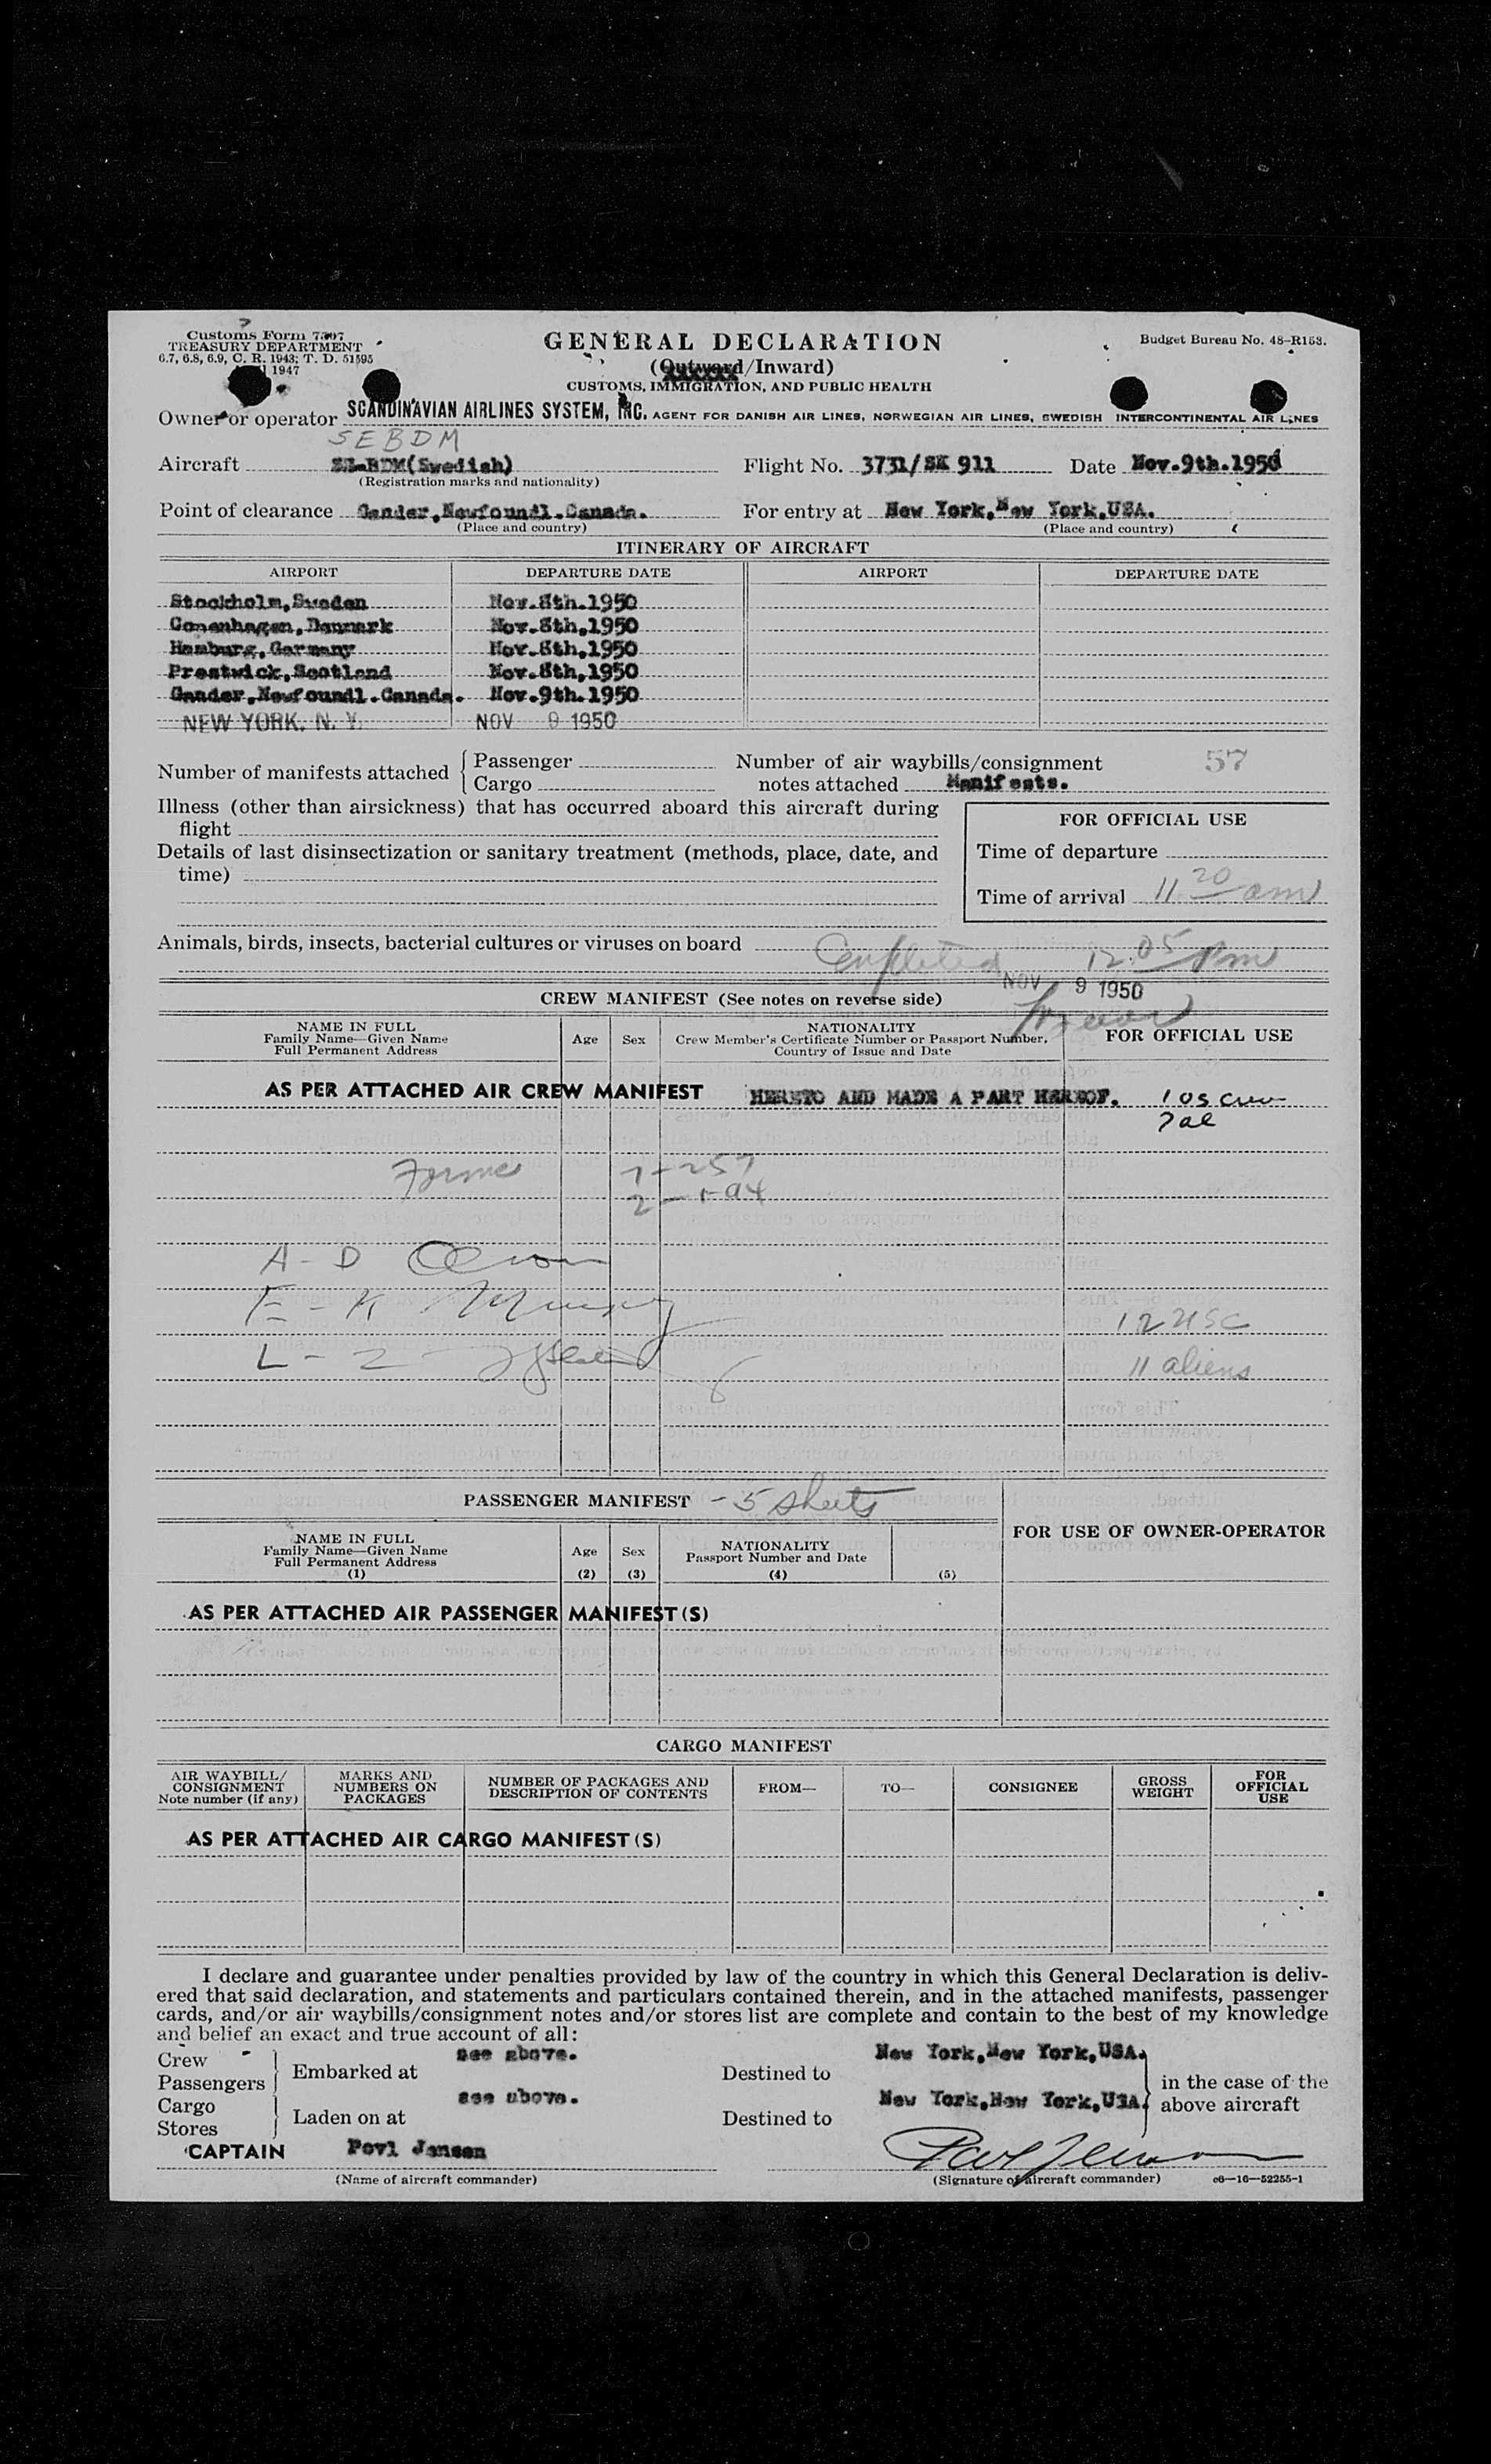 Customs Form 7507
TREASURY DEPARTMENT
6.7, 6.8, 6.9, C. R. 1943; T. D. 51595
1947
GENERAL DECLARATION
(Outward/Inward)
CUSTOMS, IMMIGRATION, AND PUBLIC HEALTH
Budget Bureau No. 48-R153.
Owner or operator SCANDINAVIAN AIRLINES SYSTEM, INC. AGENT FOR DANISH AIR LINES, NORWEGIAN AIR LINES, SWEDISH INTERCONTINENTAL AIR LINES
SEBDM
Aircraft SE-BDM(Swedish) Flight No. 3731/SK 911 Date Nov.9th.1950
(Registration marks and nationality)
Point of clearance Gander,Newfoundl.Canada. For entry at New York,New York,USA.
(Place and country) (Place and country)
ITINERARY OF AIRCRAFT
AIRPORT DEPARTURE DATE AIRPORT DEPARTURE DATE
Stockholm,Sweden Nov.8th.1950
Copenhagen,Danmark Nov.8th,1950
Hamburg,Germany Nov.8th,1950
Prestwick,Scotland Nov.8th,1950
Gander,Newfoundl.Canada. Nov.9th.1950
NEW YORK, N. Y. NOV 9 1950
Number of manifests attached { Passenger
Cargo
Number of air waybills/consignment 57
notes attached Manifests.
Illness (other than airsickness) that has occurred aboard this aircraft during
flight
Details of last disinsectization or sanitary treatment (methods, place, date, and
time)
FOR OFFICIAL USE
Time of departure
Time of arrival 11 20 am
Animals, birds, insects, bacterial cultures or viruses on board Completed 12.05 pm
NOV 9 1950
CREW MANIFEST (See notes on reverse side)
NAME IN FULL
Family Name—Given Name
Full Permanent Address
Age Sex
NATIONALITY
Crew Member's Certificate Number or Passport Number,
Country of Issue and Date
FOR OFFICIAL USE
AS PER ATTACHED AIR CREW MANIFEST HERETO AND MADE A PART HEREOF. 1 US Crew
7 al
Forms 7-257
A - D
E - K
L - Z
12 USC
11 aliens
PASSENGER MANIFEST - 5 sheets
FOR USE OF OWNER-OPERATOR
NAME IN FULL
Family Name—Given Name
Full Permanent Address
(1)
Age
(2)
Sex
(3)
NATIONALITY
Passport Number and Date
(4)
(5)
AS PER ATTACHED AIR PASSENGER MANIFEST(S)
CARGO MANIFEST
AIR WAYBILL/
CONSIGNMENT
Note number (if any)
MARKS AND
NUMBERS ON
PACKAGES
NUMBER OF PACKAGES AND
DESCRIPTION OF CONTENTS
FROM—
TO—
CONSIGNEE
GROSS
WEIGHT
FOR
OFFICIAL
USE
AS PER ATTACHED AIR CARGO MANIFEST(S)
I declare and guarantee under penalties provided by law of the country in which this General Declaration is deliv-
ered that said declaration, and statements and particulars contained therein, and in the attached manifests, passenger
cards, and/or air waybills/consignment notes and/or stores list are complete and contain to the best of my knowledge
and belief an exact and true account of all:
Crew
Passengers
Embarked at see above. Destined to New York,New York,USA.
Cargo
Stores
Laden on at see above. Destined to New York,New York,USA.
in the case of the
above aircraft
CAPTAIN Povl Jensen
Povl Jensen
(Name of aircraft commander) (Signature of aircraft commander) c6—16—52255-1